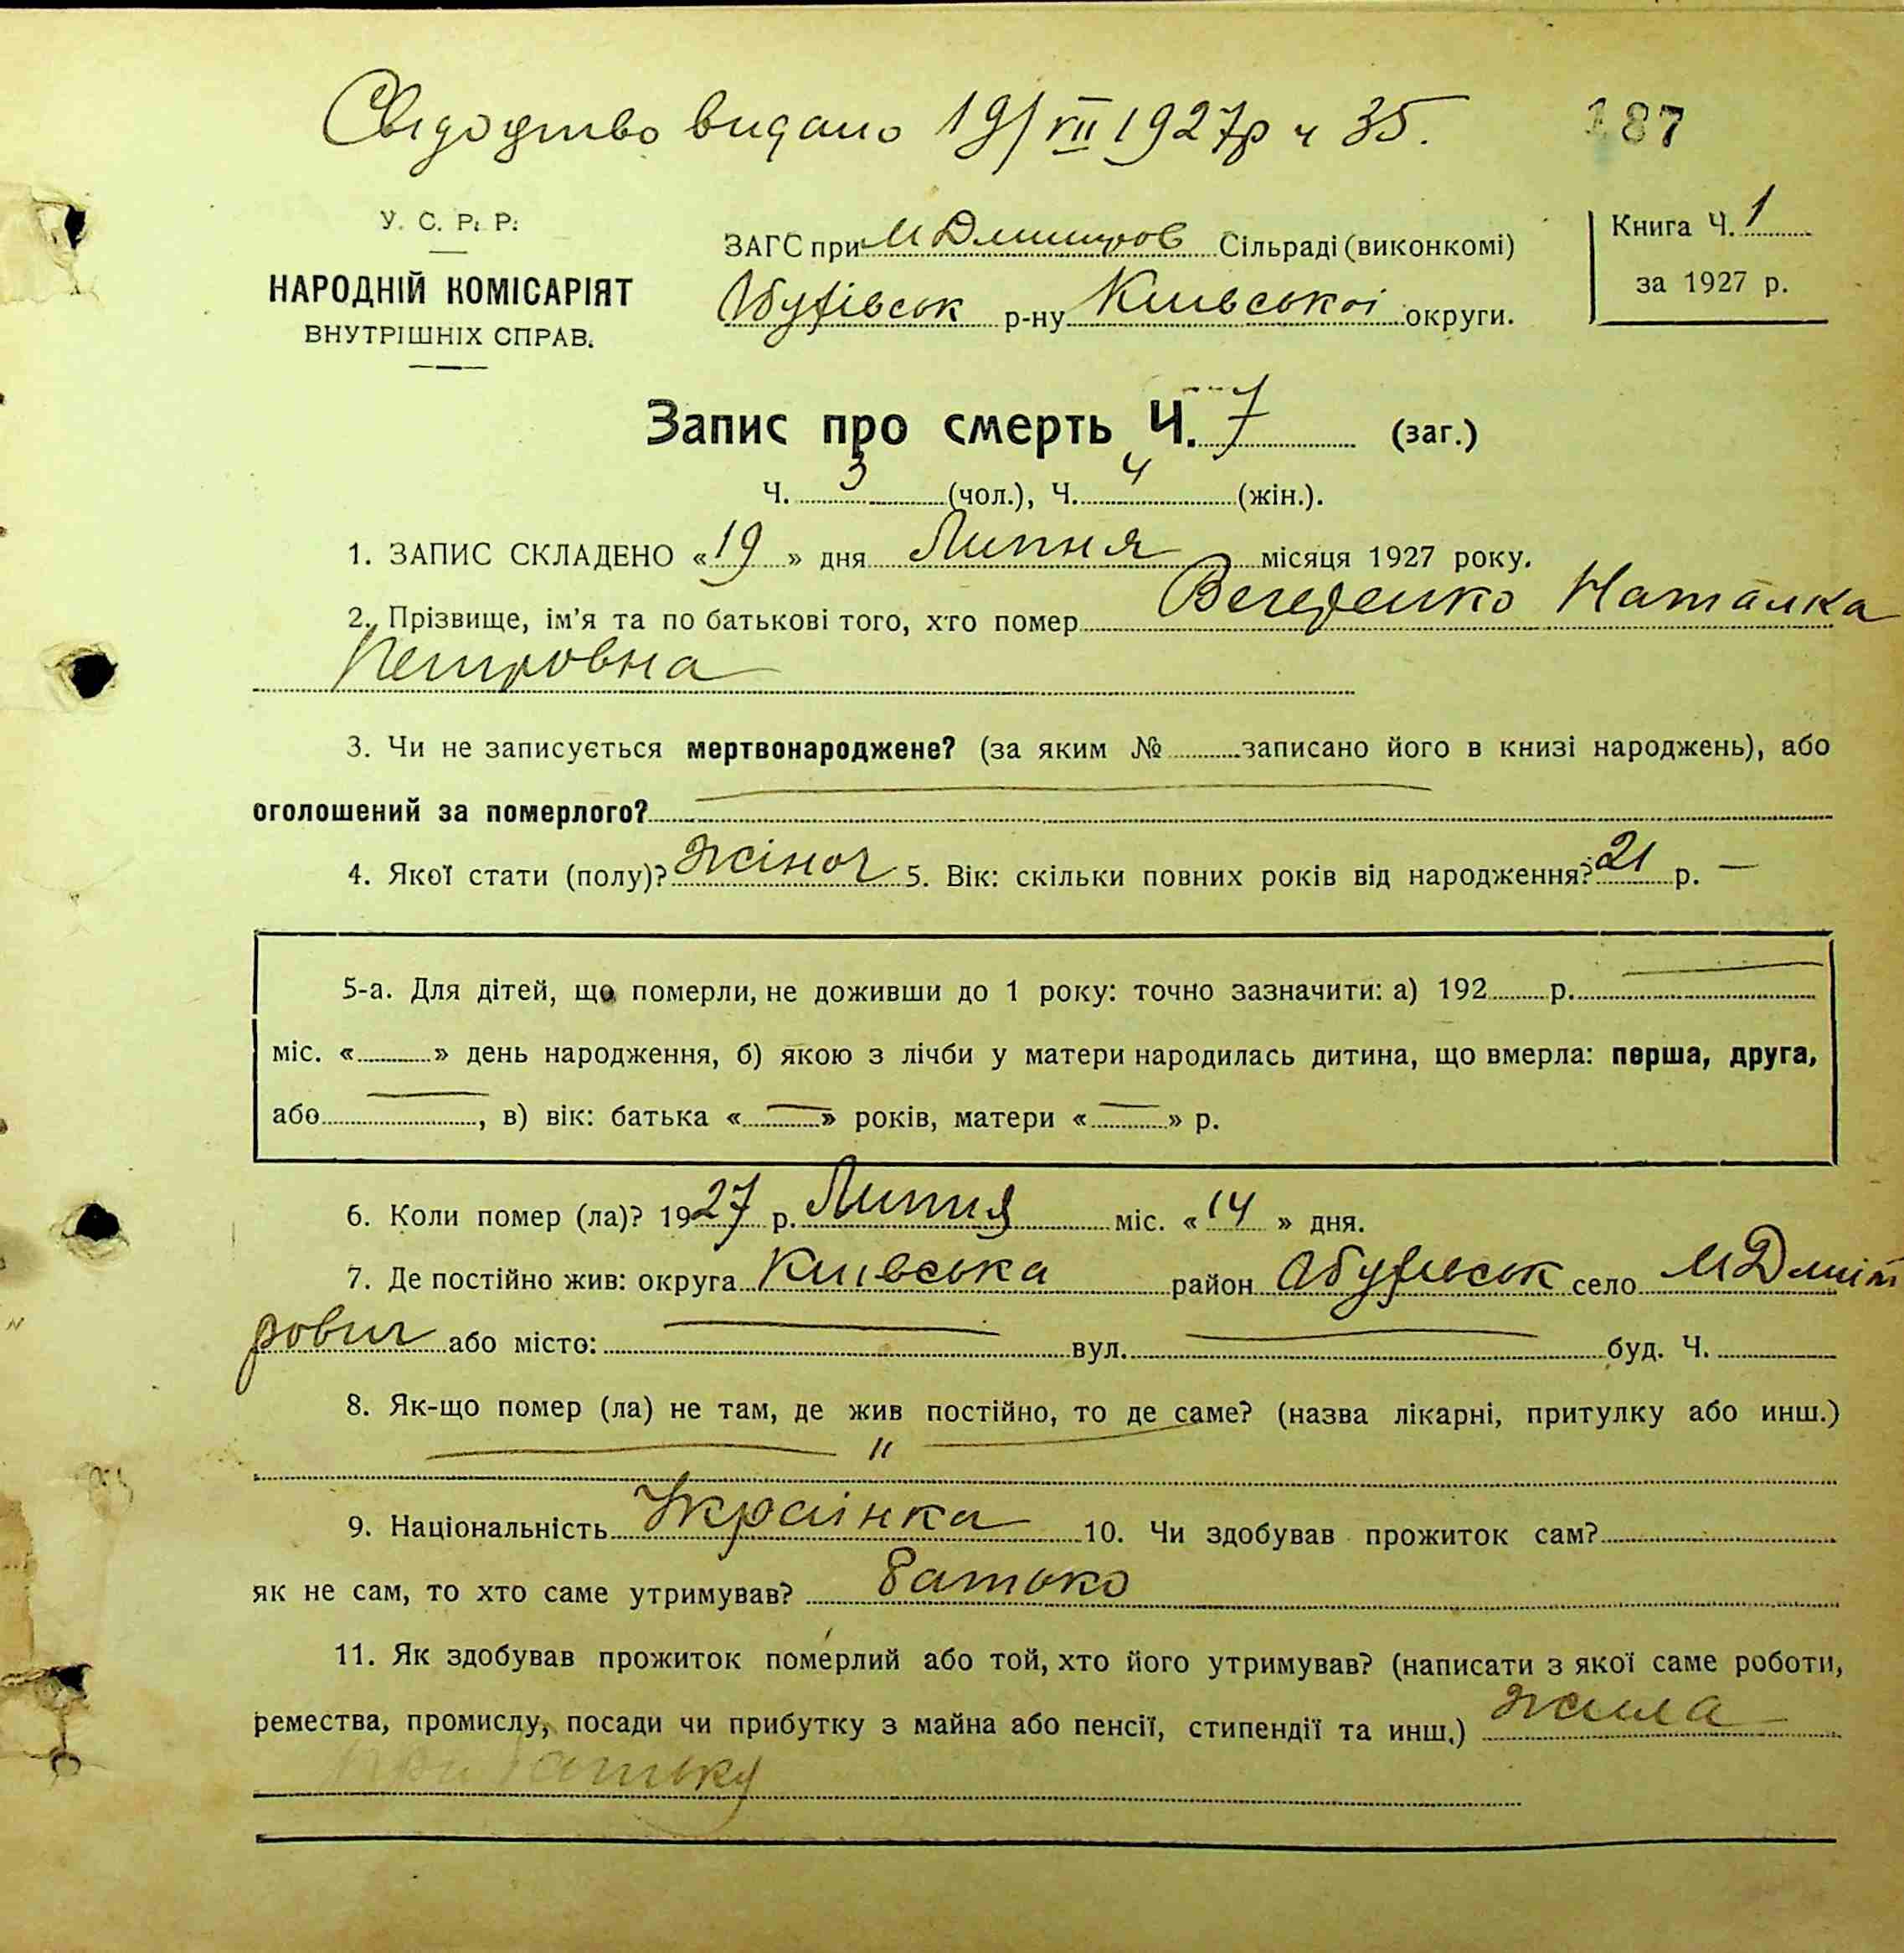 Свідоцтво видано 19/VII 1927р ч 35. 187
У. С. Р. Р.
НАРОДНІЙ КОМІСАРІЯТ
ВНУТРІШНІХ СПРАВ.
ЗАГС при М Дмитров Сільраді (виконкомі)
Обухівськ р-ну Київської округи.
Книга Ч. 1
за 1927 р.
Запис про смерть Ч. 7 (заг.)
Ч. 3 (чол.), Ч. 4 (жін.).
1. ЗАПИС СКЛАДЕНО «19» дня Липня місяця 1927 року.
2. Прізвище, ім'я та по батькові того, хто помер Наталка
Петровна
3. Чи не записується мертвонароджене? (за яким № записано його в книзі народжень), або
оголошений за померлого?
4. Якої стати (полу)? жіноч 5. Вік: скільки повних років від народження? 21 р. —
5-а. Для дітей, що померли, не доживши до 1 року: точно зазначити: а) 192 р.
міс. « » день народження, б) якою з лічби у матери народилась дитина, що вмерла: перша, друга,
або , в) вік: батька « — » років, матери « — » р.
6. Коли помер (ла)? 1927 р. Липня міс. «14» дня.
7. Де постійно жив: округа Київська район Обухівськ село М Дміт
рович або місто: вул. буд. Ч.
8. Як-що помер (ла) не там, де жив постійно, то де саме? (назва лікарні, притулку або инш.)
— " —
9. Національність Украінка 10. Чи здобував прожиток сам?
як не сам, то хто саме утримував? батько
11. Як здобував прожиток померлий або той, хто його утримував? (написати з якої саме роботи,
ремества, промислу, посади чи прибутку з майна або пенсії, стипендії та инш.) жила
при батьку